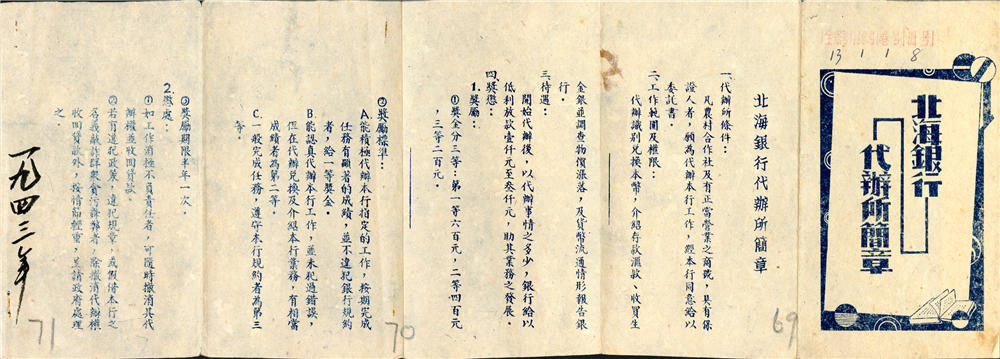 13 1 1 8
北海銀行
代辦所簡章
69
北海銀行代辦所簡章
一、代辦所條件：
凡農村合作社及有正當營業之商號，具有保
證人者，願為代辦本行工作，經本行同意給以
委託書。
二、工作範圍及權限：
代辦識別兌換本幣，介紹存款滙款、收買生
金銀並調查物價漲落，及貨幣流通情形報告銀
行。
三、待遇：
開始代辦後，以代辦事情之多少，銀行給以
低利放款壹仟元至叁仟元，助其業務之發展。
四、獎懲：
1.獎勵：
①獎金分三等：第一等六百元，二等四百元
，三等二百元。
70
②獎勵標準：
A.能積極代辦本行指定的工作，按期完成
任務有顯著的成績，並不違犯銀行規約
者，給一等獎金。
B.能認真代辦本行工作，並未犯過錯誤，
但在代辦兌換及介紹本行業務，有相當
成績者為第二等。
C.一般完成任務，遵守本行規約者為第三
等。
③獎勵期限半年一次。
2.懲處：
①如工作消極不負責任者，可隨時撤消其代
辦權並收回貸款。
②若有違犯政策，違犯規章，或假借本行之
名義敲詐群衆貪污舞弊者，除撤消代辦權
收回貸款外，按情節輕重，呈請政府處理
之。
71
一九四三年